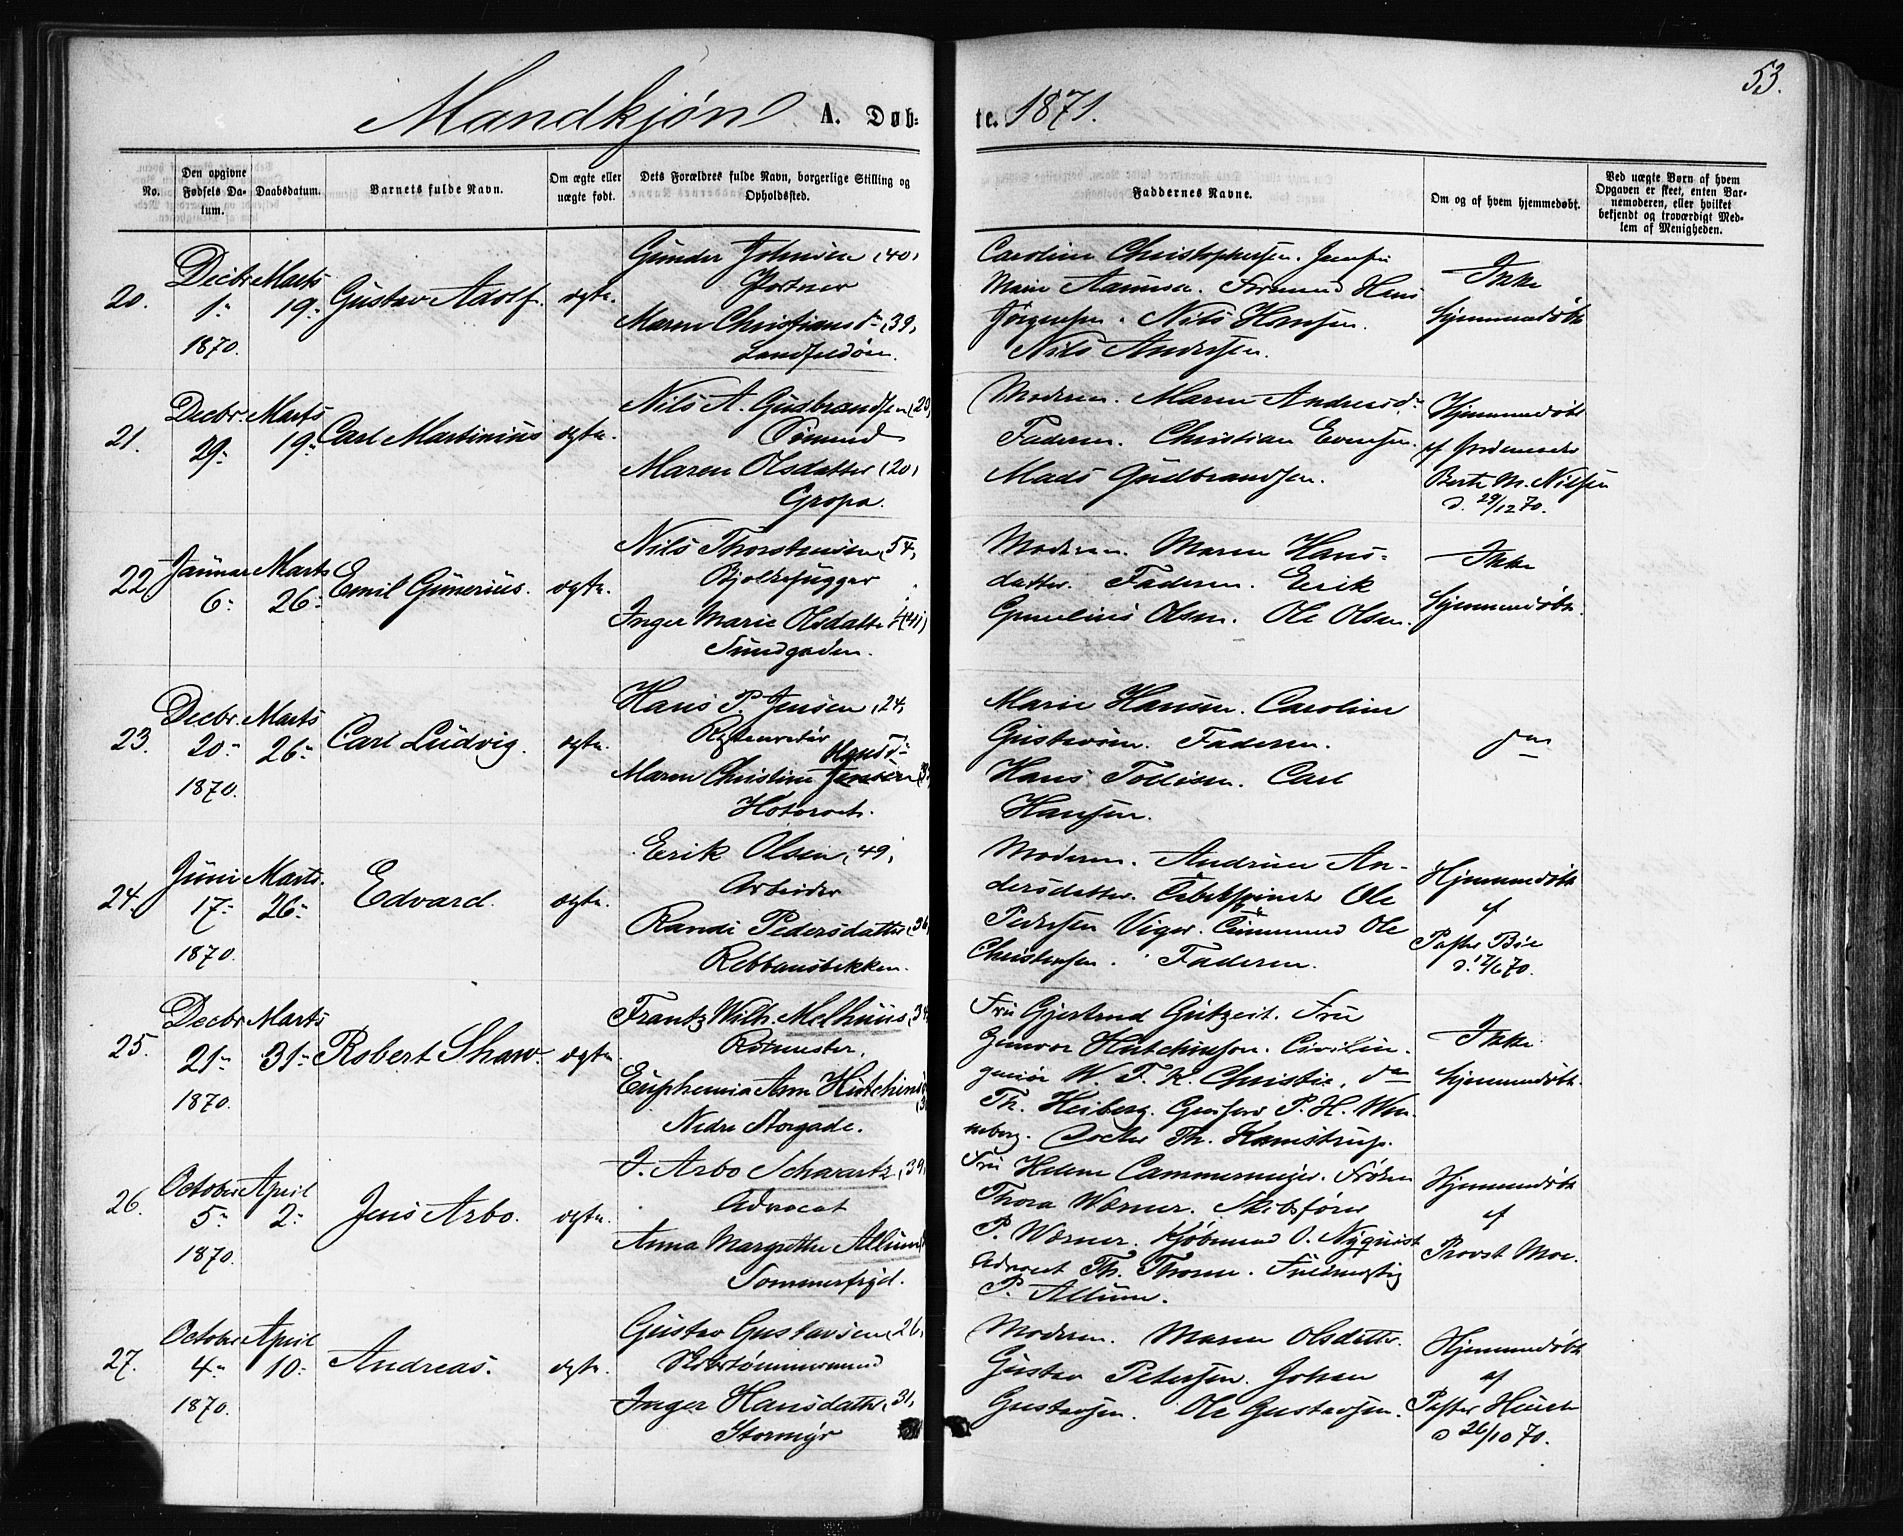 53.
Mandkjøn A. Døb- te. 1871.
No.
Den opgivne Fødsels Da-
tum.
Daabsdatum.
Barnets fulde Navn.
Om ægte eller
uægte født.
Dets Forældres fulde Navn, borgerlige Stilling og
Opholdssted.
Faddernes Navne.
Om og af hvem hjemmedøbt.
Ved uægte Børn af hvem
Opgaven er skeet, enten Bar-
nemoderen, eller hvilket
bekjendt og troværdigt Med-
lem af Menigheden.
20. Decbr 1 1870. Marts 19 Gustav Adolf. ægte.
Gunder Johnsen (40)
Portner
Maren Christiansd (39)
Landfaldøen.
Caroline Christophersen.
Marie Hans
Jörgensen. Nils Hansen.
Nils Andersen.
Ikke
hjemmedøbt
21. Decbr 29 Marts 19 Carl Martinius ægte.
Nils A. Gudbrandsen (20)
Sømand
Maren Olsdatter (20)
Gropa.
Moderen. Maren Andersd
Faderen. Christian Evensen.
Mads Gudbrandsen.
Hjemmedøbt
af Jordemoder
Berte M. Nilsen
d. 29/12 70.
22 Januar 6 Marts 26 Emil Gunerius. ægte.
Nils Thorstensen (54)
Bjelkehugger
Inger Marie Olsdatter (41)
Sundgaden.
Moderen. Maren Hans-
datter. Faderen. Erik
Olsen. Ole Olsen.
Ikke
hjemmedøbt.
23. Decbr. 20 1870. Marts 26 Carl Ludvig. ægte.
Hans P. Jensen (24)
Maren Christine Jensen Hansd
Høtorvet.
Marie Hansen. Caroline
Gustavsen. Faderen.
Hans Carl
Hansen.
do
24. Juni 17 1870. Marts 26 Edvard. ægte.
Erik Olsen (49)
Arbeider
Randi Pedersdatter (36)
Rebbansbekken.
Moderen. Andrine An-
dersdatter. Ole
Pedersen Viger. Ole
Christensen. Faderen.
Hjemmedøbt
af
Pastor Bøe
d. 17/6 70.
25. Decbr 21 1870. Marts 31 Robert Shaw. ægte.
Frantz Wilh. Melhuus (34)
Euphemia Ann Hutchinson
Nedre Storgade.
Fru Gjertrud Gutzeit. Fru
Gunvor Hutchinson. Civilin-
geniør W. F. K. Christie. do
Th. Heiberg. P. H. Wen-
neberg. Doctor Th. Kamstrup.
Ikke
hjemmedøbt.
26. October 5 1870. April 2 Jens Arbo. ægte.
J. Arbo Schwartz (39)
Advocat
Anna Margrethe Allum
Sommerfryd.
Fru Helene Cammermeyer. Frøken
Thora Wærner. Skibsfører
P. Wærner. Kjøbmand O. Nyquist
Advocat Th. Thorne. Fuldmægtig
P. Allum.
Hjemmedøbt
af
Provst Moe.
27. October 4 1870. April 10 Andreas. ægte.
Gustav Gustavsen (26)
Skibstømmermand
Inger Hansdatter (31)
Stormyr
Moderen. Maren Olsdatter.
Gustav Petersen. Johan
Gustavsen. Ole Gustavsen.
Hjemmedøbt
af
Pastor
d 26/10 70.